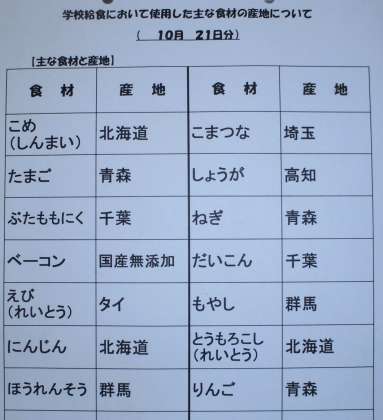 学校給食において使用した主な食材の産地について
（　10月　21日分）
【主な食材と産地】
食　材　産　地　食　材　産　地
こめ
（しんまい）　北海道　こまつな　埼玉
たまご　青森　しょうが　高知
ぶたももにく　千葉　ねぎ　青森
ベーコン　国産無添加　だいこん　千葉
えび
（れいとう）　タイ　もやし　群馬
にんじん　北海道　とうもろこし
（れいとう）　北海道
ほうれんそう　群馬　りんご　青森